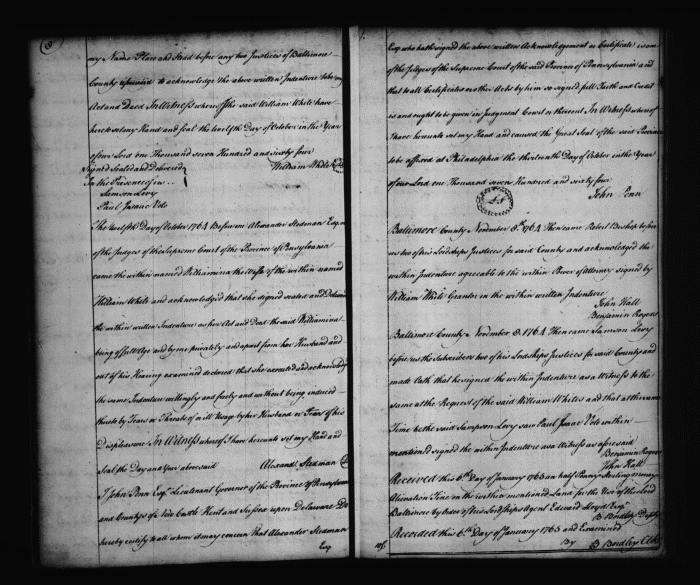 8
my Name Place and Stead before any two Justices of Baltimore
County to acknowledge the above written Indenture to be my
Act and Deed In Witness whereof the said William White have
hereto set my Hand and Seal the twelfth Day of October in the Year
of our Lord one Thousand seven Hundred and sixty four
Signed Sealed and Delivered
William White
In the Presence of us ..
Samson Levy
Paul Isaac Voto
The twelfth Day of October 1764 Before me Alexander Stedman Esqr. one
of the Judges of the Supreme Court of the Province of Pensylvania
came the within named Williamina the Wife of the within named
William White and acknowledged that she signed sealed and Delivered
the within written Indenture as her Act and Deed the said Williamina
being of full Age and by me privately and apart from her Husband and
out of his Hearing examined declared that she executed and acknowledged
the same Indenture willingly and freely and without being induced
thereto by Fears or Threats of or ill Usage by her Husband or Fear of his
Displeasure In Witness whereof I have hereunto set my Hand and
Seal the Day and Year above said Alexandr. Stedman
I John Penn Esqr. Lieutenant Governor of the Province of Pensylvania
and Countys of New Castle Kent and Sussex upon Delaware Do
hereby certify to all whom it may concern That Alexander Stedman
Esq
Esq who hath signed the above written Acknowledgement or Certificate is one
of the Judges of the Supreme Court of the said Province of Pennsylvania and
that to all Certificates or other Acts by him so signed full Faith and Credit
is and ought to be given in Judgment Court or thereout In Witness whereof
I have hereunto set my Hand and caused the Great Seal of the said Province
to be affixed at Philadelphia the thirteenth Day of October in the Year
of our Lord one Thousand seven Hundred and sixty four
John Penn
LS
Baltimore County November 8th. 1764 Then came Robert Bishop before
us two of his Lordships Justices for said County and acknowledged the
within Indenture agreeable to the within Power of Attorney signed by
William White Grantor in the within written Indenture
John Hall
Benjamin Rogers
Baltimore County November 8. 1764 Then came Samson Levy
before us the Subscribers two of his Lordships Justices for said County and
made Oath that he signed the within Indenture as a Witness to the
same at the Request of the said William White and that at the same
Time he the said Sampson Levy saw Paul Isaac Voto within
mentioned signed the within Indenture as a Witness as aforesaid
Benjamin Rogers
John Hall
Received this 6th. Day of January 1765 an half Penny Sterling money
Alienation Fine on the within mentioned Land for the Use of the Lord
Baltimore by Order of his Lordships Agent Edward Lloyd Esqr.
B Bordley
Recorded this 6th. Day of January 1765 and Examined
By B Bordley Clk